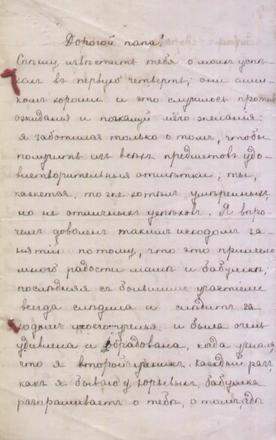 Дорогой папа!
Спѣшу извѣстить тебя о моихъ успѣ-
хахъ въ первую четверть; они слиш-
комъ хороши и это случилось противъ
ожиданія и пожалуй моего желанія:
я заботился только о томъ, чтобы
получить изъ всѣхъ предметовъ удо-
влетворительныя отмѣтки; ты,
кажется, тоже хотѣлъ умѣренныхъ,
но не отличныхъ успѣховъ. Я впро-
чемъ доволенъ такимъ исходомъ заня-
тій потому, что это принесло
много радости мамѣ и бабушкѣ;
послѣдняя съ большимъ участіемъ
всегда слѣдила и слѣдитъ за
ходомъ и была очень
удивлена и обрадована, когда узнала
что я второй ученикъ. Каждый разъ
какъ я бываю у бабушка
разспрашиваетъ о тебѣ, о томъ, гдѣ